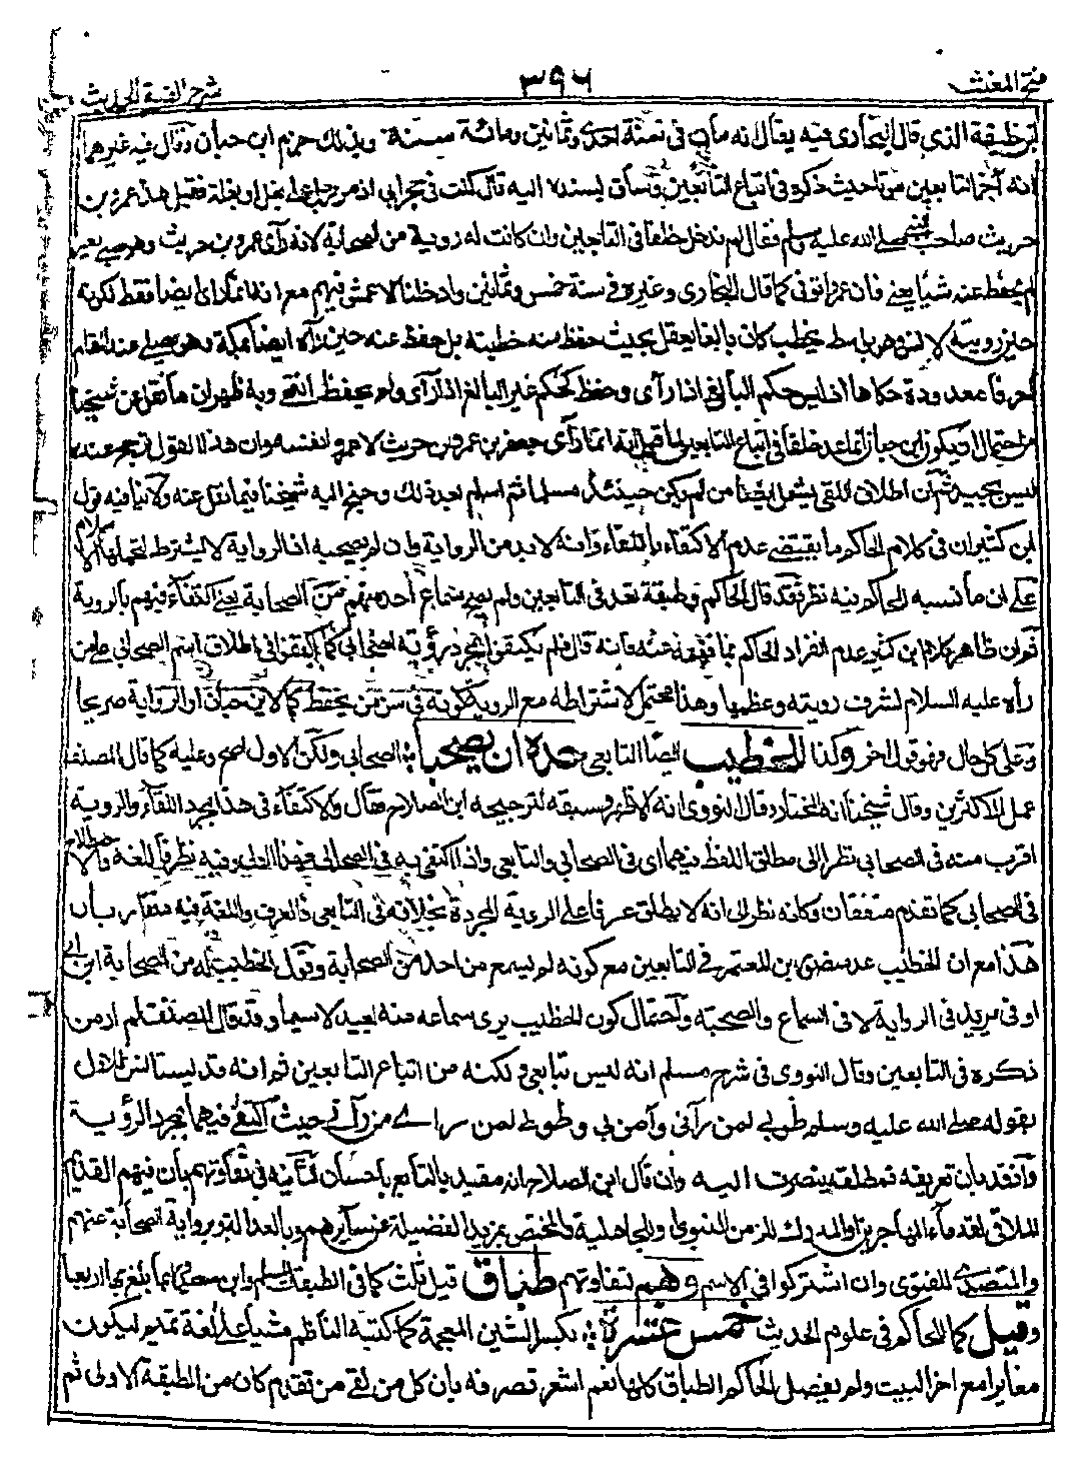 فتح المغيث
٣٩٦
شرح الفية الحديث
بن خليفة الذي قال البخاري فيه يقال انه مات في سنة احدى وثمانين ومائة سنة وبذلك جزم ابن حبان وقال فيه غيرهما
انه آخر التابعين موتا حيث ذكره في اتباع التابعين وساق بسنده اليه قال كنت في حجر ابي اذ مر رجل على بغل او بغلة فقيل هذا عمرو بن
حريث صاحب النبي صلى الله عليه وسلم فقال لم ندخل خلفا في التابعين وان كانت له روية من الصحابة لانه رأى عمرو بن حريث وهو صبي صغير
لم يحفظ عنه شيأ يعني فان عمرا توفي كما قال البخاري وغيره في سنة خمس وثمانين وادخلنا الاعمش فيهم مع انه انما رأى ايضا فقط لكونه
حين رويته لانس وهو بواسط يخطب كان بالغا يعقل بحيث حفظ منه خطبته بل حفظ عنه حين رآه ايضا بمكة وهو يصلي عند المقام
احرفا معدودة حكاها اذ ليس حكم البالغ اذا رأى وحفظ كحكم غير البالغ اذا رأى ولم يحفظ انتهى وبه ظهر ان ما نقل عن شيخنا
من احتمال ان يكون ابن حبان انما عد خلفا في اتباع التابعين لما قيل انه انما رأى جعفر بن عمرو بن حريث لا عمرو لنفسه وان هذا القول ترجح عنده
ليس بجيد ثم ان اطلاق اللقي يشمل ايضا من لم يكن حينئذ مسلما ثم اسلم بعد ذلك وجنح اليه شيخنا فيما نقل عنه ولا ينافيه قول
ابن كثير ان في كلام الحاكم ما يقتضي عدم الاكتفاء باللقاء وانه لا بد من الرواية وان لم يصحبه اذ الرواية لا يشترط لتحملها الاسلام
على ان ما نسبه الى الحاكم فيه نظر فقد قال الحاكم وطبقة تعد في التابعين ولم يصح سماع احد منهم من الصحابة يعني اكتفاء فيهم بالروية
نعم ظاهر كلام ابن كثير عدم انفراد الحاكم بما فهمه عنه فانه قال فلم يكتفوا بمجرد رؤيته الصحابي كما اكتفوا في اطلاق اسم الصحابي على من
رأه عليه السلام لشرف رويته وعظمها وهذا محتمل لاشتراطه مع الروية كونه في سن من يحفظ كما لابن حبان او الرواية صريحا
وعلى كل حال فهو قول آخر وكذا للخطيب ايضا التابعي حده ان يصحبا الصحابي ولكن الاول اصح وعليه كما قال المصنف
عمل الاكثرين وقال شيخنا انه المختار وقال النووي انه الاظهر وسبقه لترجيحه ابن الصلاح فقال والاكتفاء في هذا بمجرد اللقاء والروية
اقرب منه في الصحابي نظرا الى مطلق اللفظ فيهما اي في الصحابي والتابعي واذا اكتفي به في الصحابي فهنا اولى وفيه نظر فاللغة والاصطلاح
في الصحابي كما تقدم متفقان وكانه نظر الى انه لا يطلق عرفا على الروية المجردة بخلافه في التابعي فالعرف واللغة فيه متقاربان
هذا مع ان الخطيب عد منصور بن المعتمر في التابعين مع كونه لم يسمع من احد من الصحابة وقول الخطيب له من الصحابة ابن ابي
اوفى يريد في الرواية لا في السماع والصحبة واحتمال كون الخطيب يرى سماعه منه بعيد لا سيما وقد قال المصنف لم ار من
ذكره في التابعين وقال النووي في شرح مسلم انه ليس بتابعي ولكنه من اتباع التابعين ثم انه قد يستانس للاول
بقوله صلى الله عليه وسلم طوبى لمن رآني وآمن بي وطوبى لمن رأى من رآني حيث اكتفى فيهما بمجرد الرؤية
وانقد بان تعريفه فمطلقه ينصرف اليه وان قال ابن الصلاح انه مقيد بالتابع باحسان ثم انه في تفاوتهم بان فيهم القديم
الملاقي لقدماء المهاجرين والمدرك للزمن النبوي والجاهلية والمختص بمزيد الفضيلة عن سائرهم وبالعدالة وبرواية الصحابة عنهم
والمتصدي للفتوى وان اشتركوا في الاسم وهم لتفاوتهم طباق قيل ثلث كما في الطبقات لمسلم وابن سعد وربما بلغ بها اربعا
وقيل كما للحاكم في علوم الحديث خمس عشرة بكسر الشين المعجمة كما كتبه الناظم مشيا على لغة تميم ليكون
مغايرا مع اخر البيت ولم يفصل الحاكم الطباق كلها نعم اشعر تصرفه بان كل من لقي من تقدم كان من الطبقة الاولى ثم